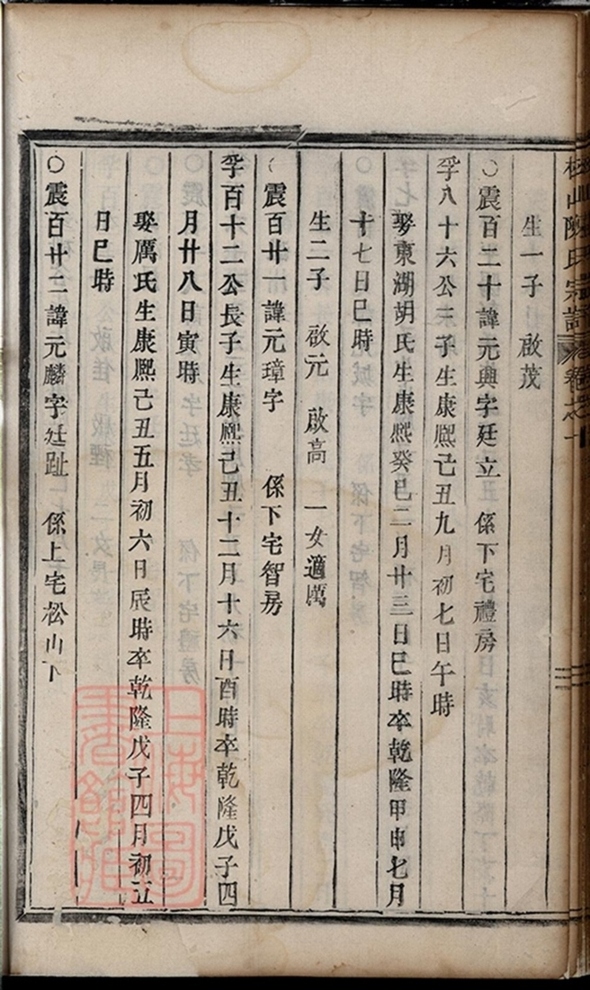 松山陳氏宗譜 卷之十
生一子 啟茂
○震百二十諱元興字廷立 係下宅禮房
孚八十六公三子生康熙己丑九月初七日午時
娶東湖胡氏生康熙癸巳二月廿三日巳時卒乾隆甲申七月
十七日巳時
生二子 啟元 啟高 一女適厲
震百廿一諱元璋字 係下宅智房
孚百十二公長子生康熙己丑十二月十六日酉時卒乾隆戊子四
月廿八日寅時
娶厲氏生康熙己丑五月初六日辰時卒乾隆戊子四月初五
日巳時
○震百廿二諱元麟字廷趾 係上宅松山下
上海圖書館藏